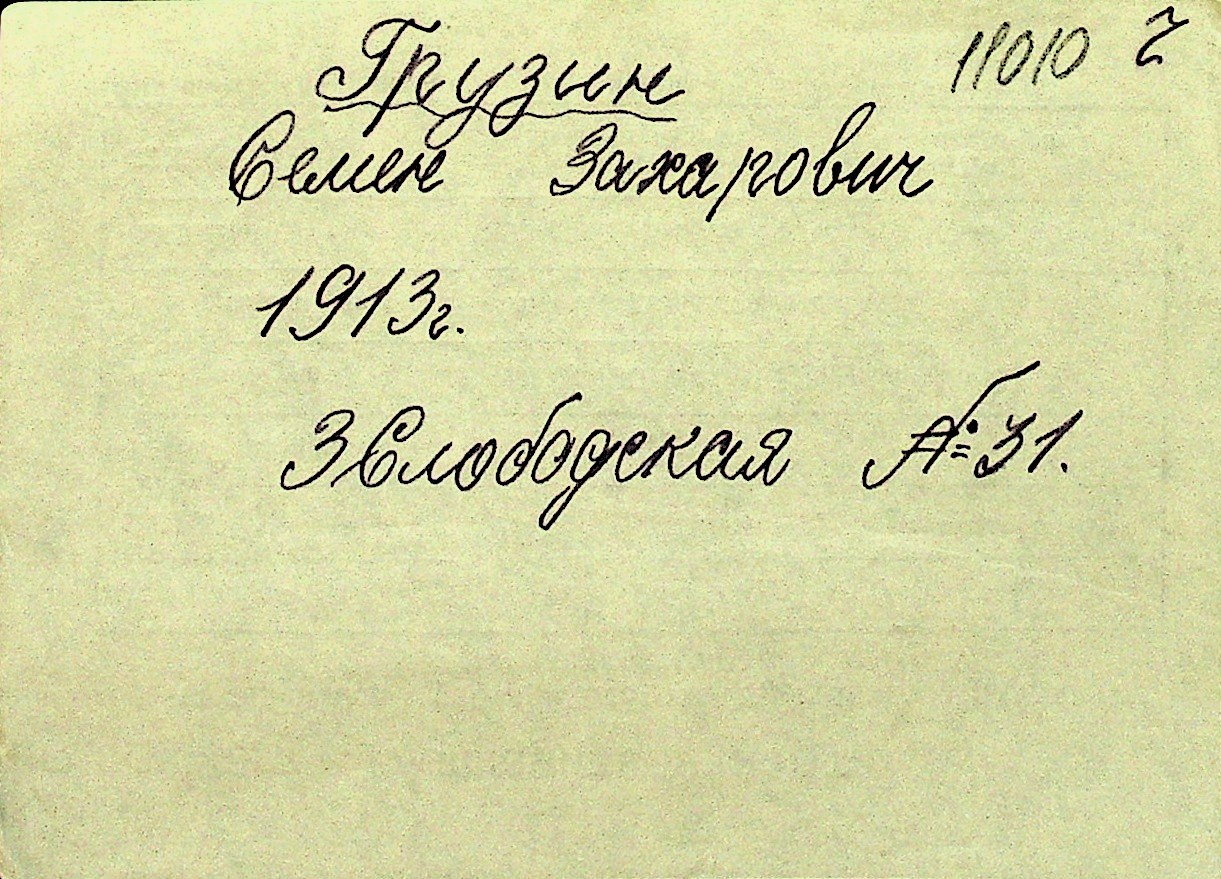 11010
Грузин
Семен Захарович
1913г.
3 Слободская № 31.